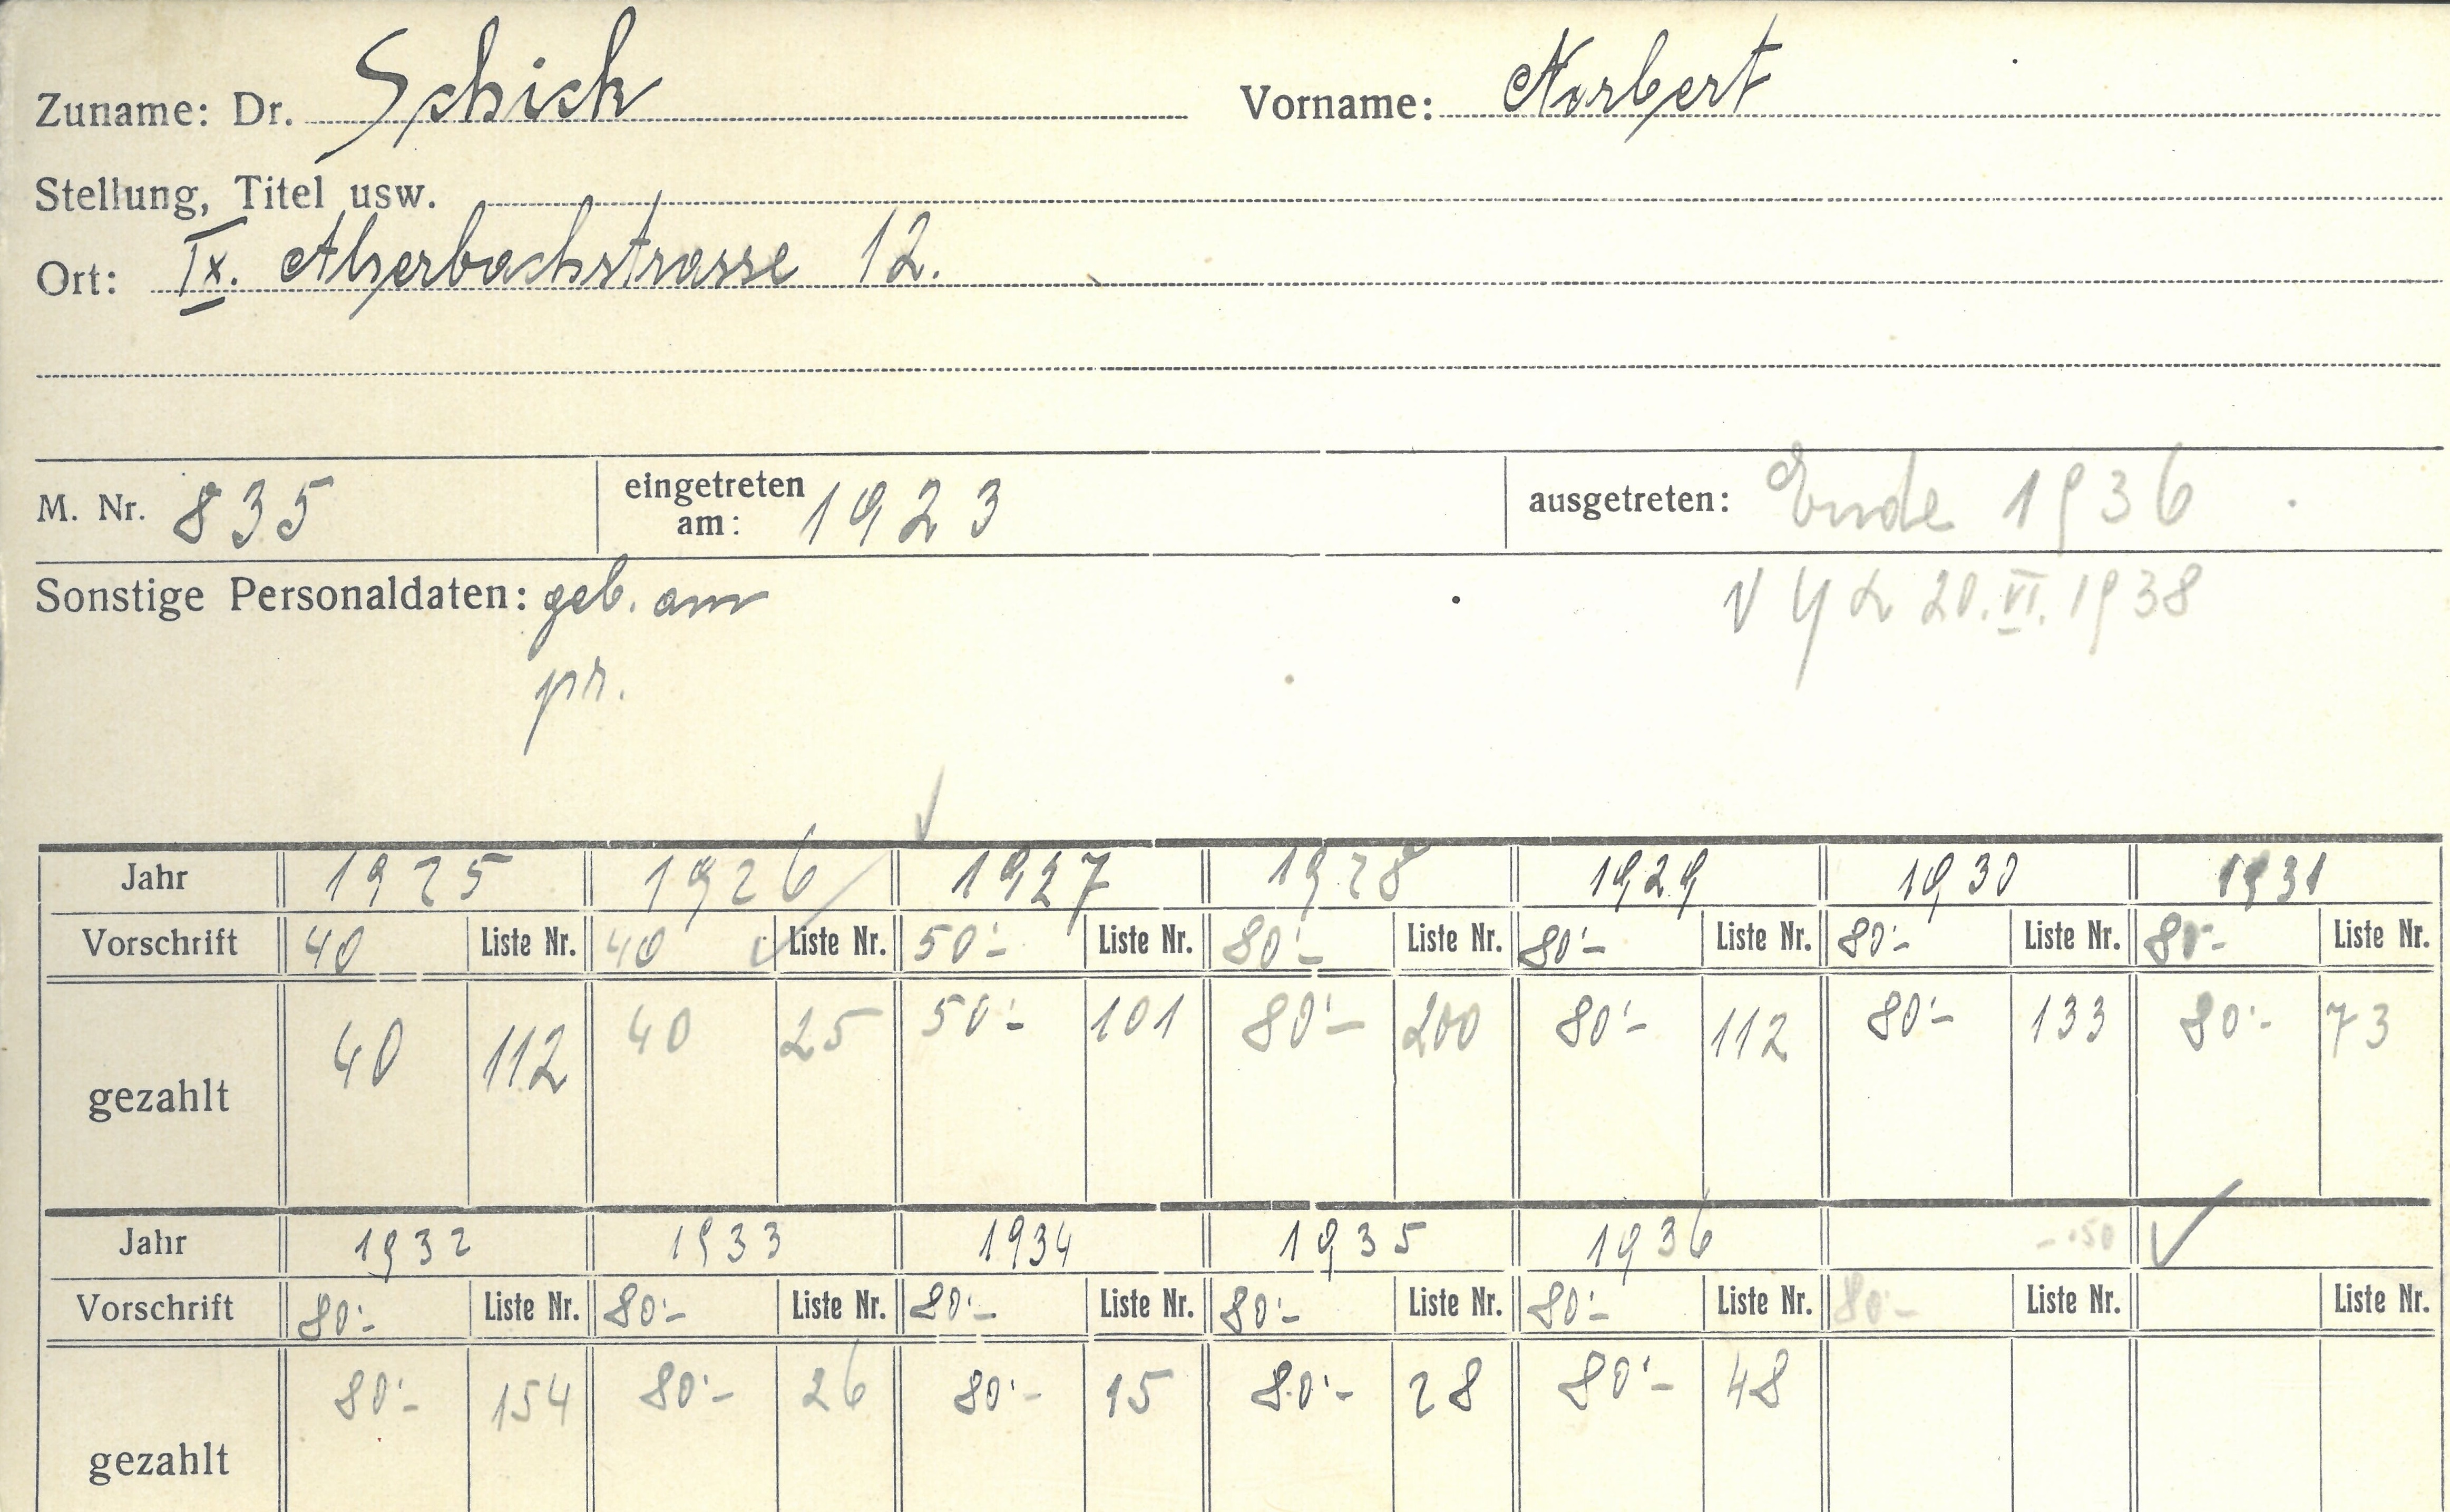 Zuname: Dr. Schick Vorname: Norbert
Stellung, Titel usw.
Ort: IX. Alserbachstrasse 12.
M. Nr. 835 eingetreten am: 1923 ausgetreten: Ende 1936
Sonstige Personaldaten: geb. am 20. VI. 1938
pr.
Jahr 1925 1926 1927 1928 1929 1930 1931
Vorschrift 40 Liste Nr. 40 Liste Nr. 50'- Liste Nr. 80'- Liste Nr. 80'- Liste Nr. 80'- Liste Nr. 80'- Liste Nr.
gezahlt 40 112 40 25 50'- 101 80'- 200 80'- 112 80'- 133 80'- 73
Jahr 1932 1933 1934 1935 1936
Vorschrift 80'- Liste Nr. 80'- Liste Nr. 80'- Liste Nr. 80'- Liste Nr. 80'- Liste Nr. 80'- Liste Nr. Liste Nr.
gezahlt 80'- 154 80'- 26 80'- 15 80'- 28 80'- 48